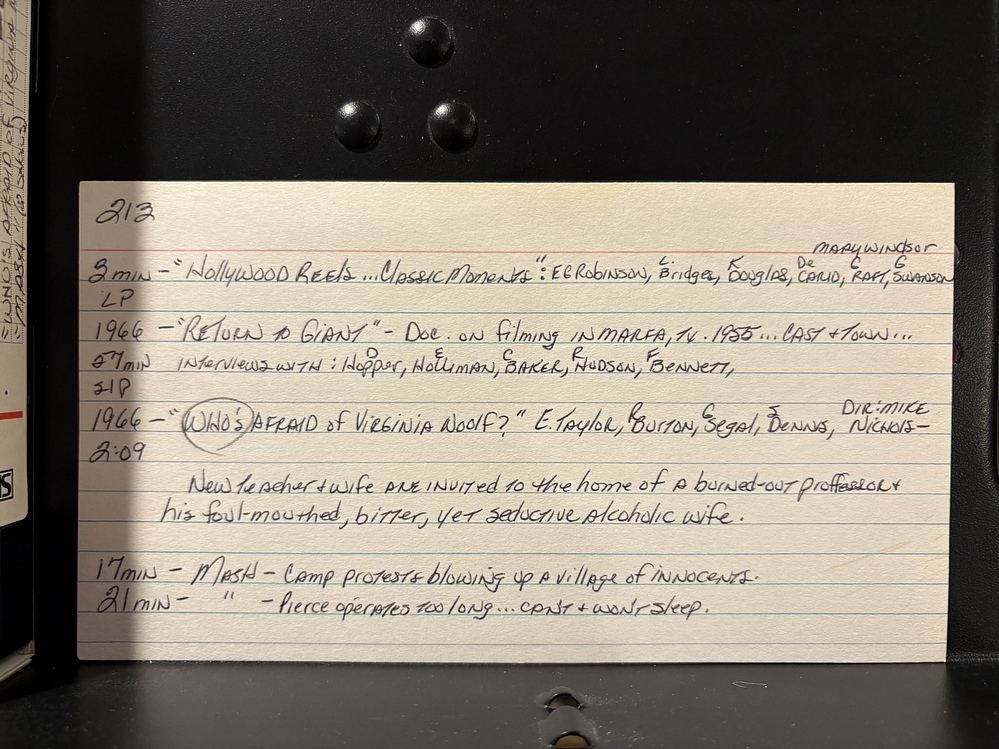 213
MARY WINDSOR
3 MIN - "HOLLYWOOD REELS... CLASSIC MOMENTS": EG ROBINSON, L. Bridges, K. Douglas, De CARLO, G. RAFT, G. SWANSON
LP
1966 - "RETURN TO GIANT" - DOC. ON filming IN MARFA, TX. 1955... CAST + TOWN...
57 min INTERVIEWS WITH: D. Hopper, E. Holliman, C. BAKER, R. HUDSON, F. BENNETT,
SLP
1966 - "WHO'S AFRAID of VIRGINIA WOOLF?" E. TAYLOR, R. BURTON, G. Segal, S. DENNIS, DIR: MIKE NICHOLS-
2:09
New teacher + wife ARE INVITED TO the home of A burned-out proffessor +
his foul-mouthed, bitter, yet seductive Alcoholic wife.
17 min - MASH - CAMP protests blowing up A village of INNOCENTS.
21 min - " - Pierce operates too long... CAN'T + WON'T sleep.
WHO'S AFRAID OF VIRGINIA